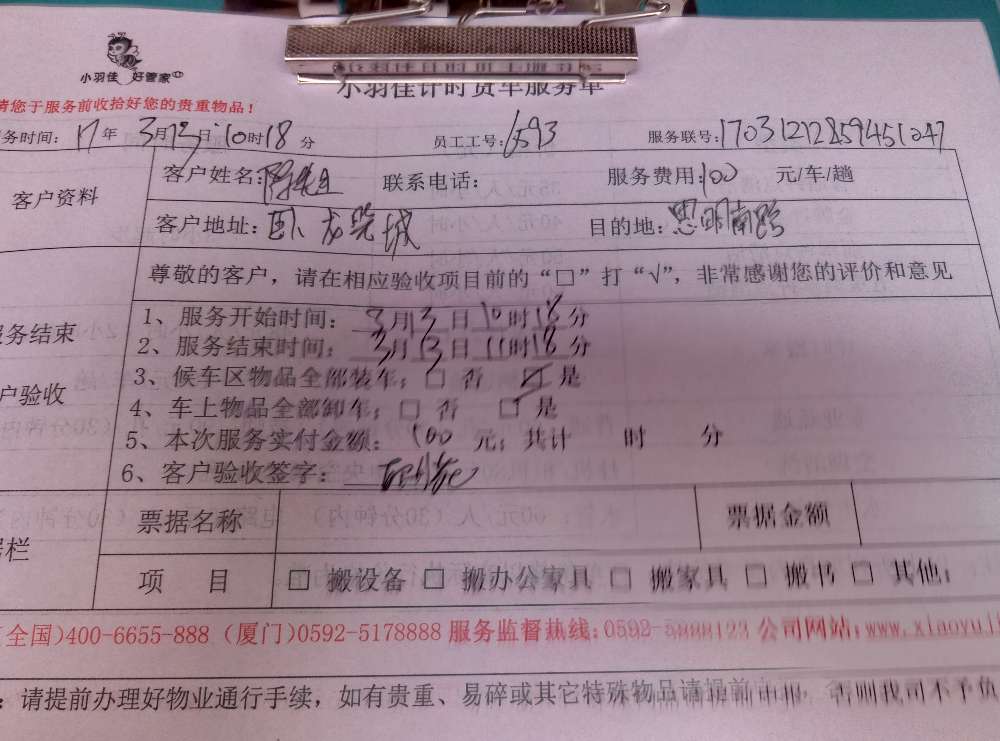 小羽佳 好管家
小羽佳计时货车服务单
请您于服务前收拾好您的贵重物品！
务时间：17年 3月13日 10时18分 员工工号：6593 服务联号：17031212859451047
客户资料 客户姓名：陈先生 联系电话： 服务费用：100 元/车/趟
客户地址：卧龙晓城 目的地：思明南路
尊敬的客户，请在相应验收项目前的“□”打“√”，非常感谢您的评价和意见
1、服务开始时间：3月13日10时18分
服务结束 2、服务结束时间：3月13日11时18分
3、候车区物品全部装车：□ 否 ☑ 是
户验收 4、车上物品全部卸车：□ 否 □ 是
5、本次服务实付金额：100 元；共计 时 分
6、客户验收签字：
票据名称 票据金额
据栏
项 目 □ 搬设备 □ 搬办公家具 □ 搬家具 □ 搬书 □ 其他：
(全国)400-6655-888 (厦门)0592-5178888 服务监督热线：0592-5888123 公司网站：www.xiaoyuj
：请提前办理好物业通行手续，如有贵重、易碎或其它特殊物品请提前申报，否则我司不予负